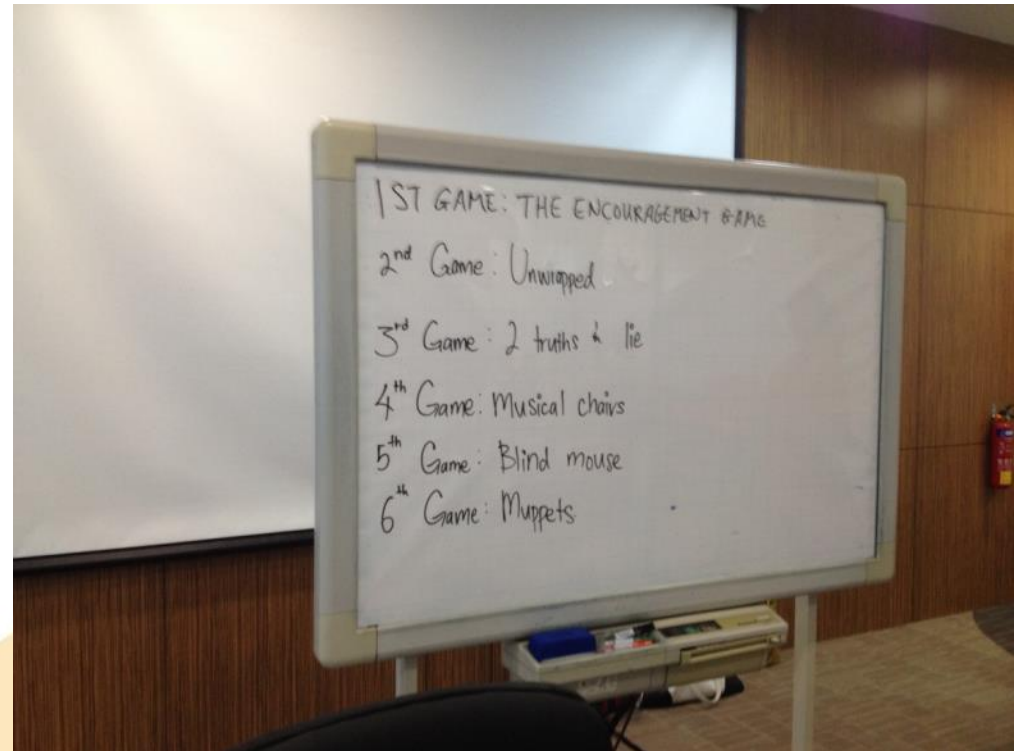 1ST GAME: THE ENCOURAGEMENT GAME
2nd Game: Unwrapped
3rd Game: 2 truths & lie
4th Game: Musical chairs
5th Game: Blind mouse
6th Game: Muppets